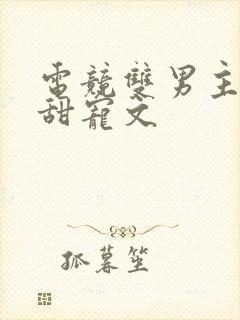 電競雙男主
甜寵文
孤暮笙